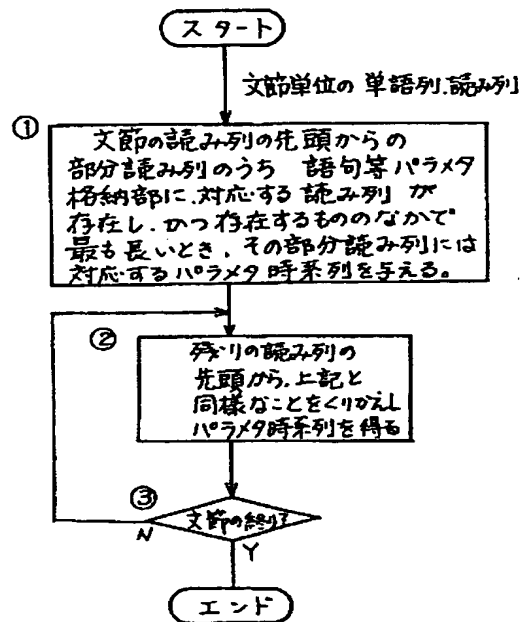 スタート
文節単位の単語列、読み列
①
文節の読み列の先頭からの
部分読み列のうち 語句等パラメタ
格納部に、対応する読み列が
存在し、かつ存在するもののなかで
最も長いとき、その部分読み列には
対応するパラメタ時系列を与える。
②
残りの読み列の
先頭から、上記と
同様なことをくりかえし
パラメタ時系列を得る
③
文節の終り?
N
Y
エンド